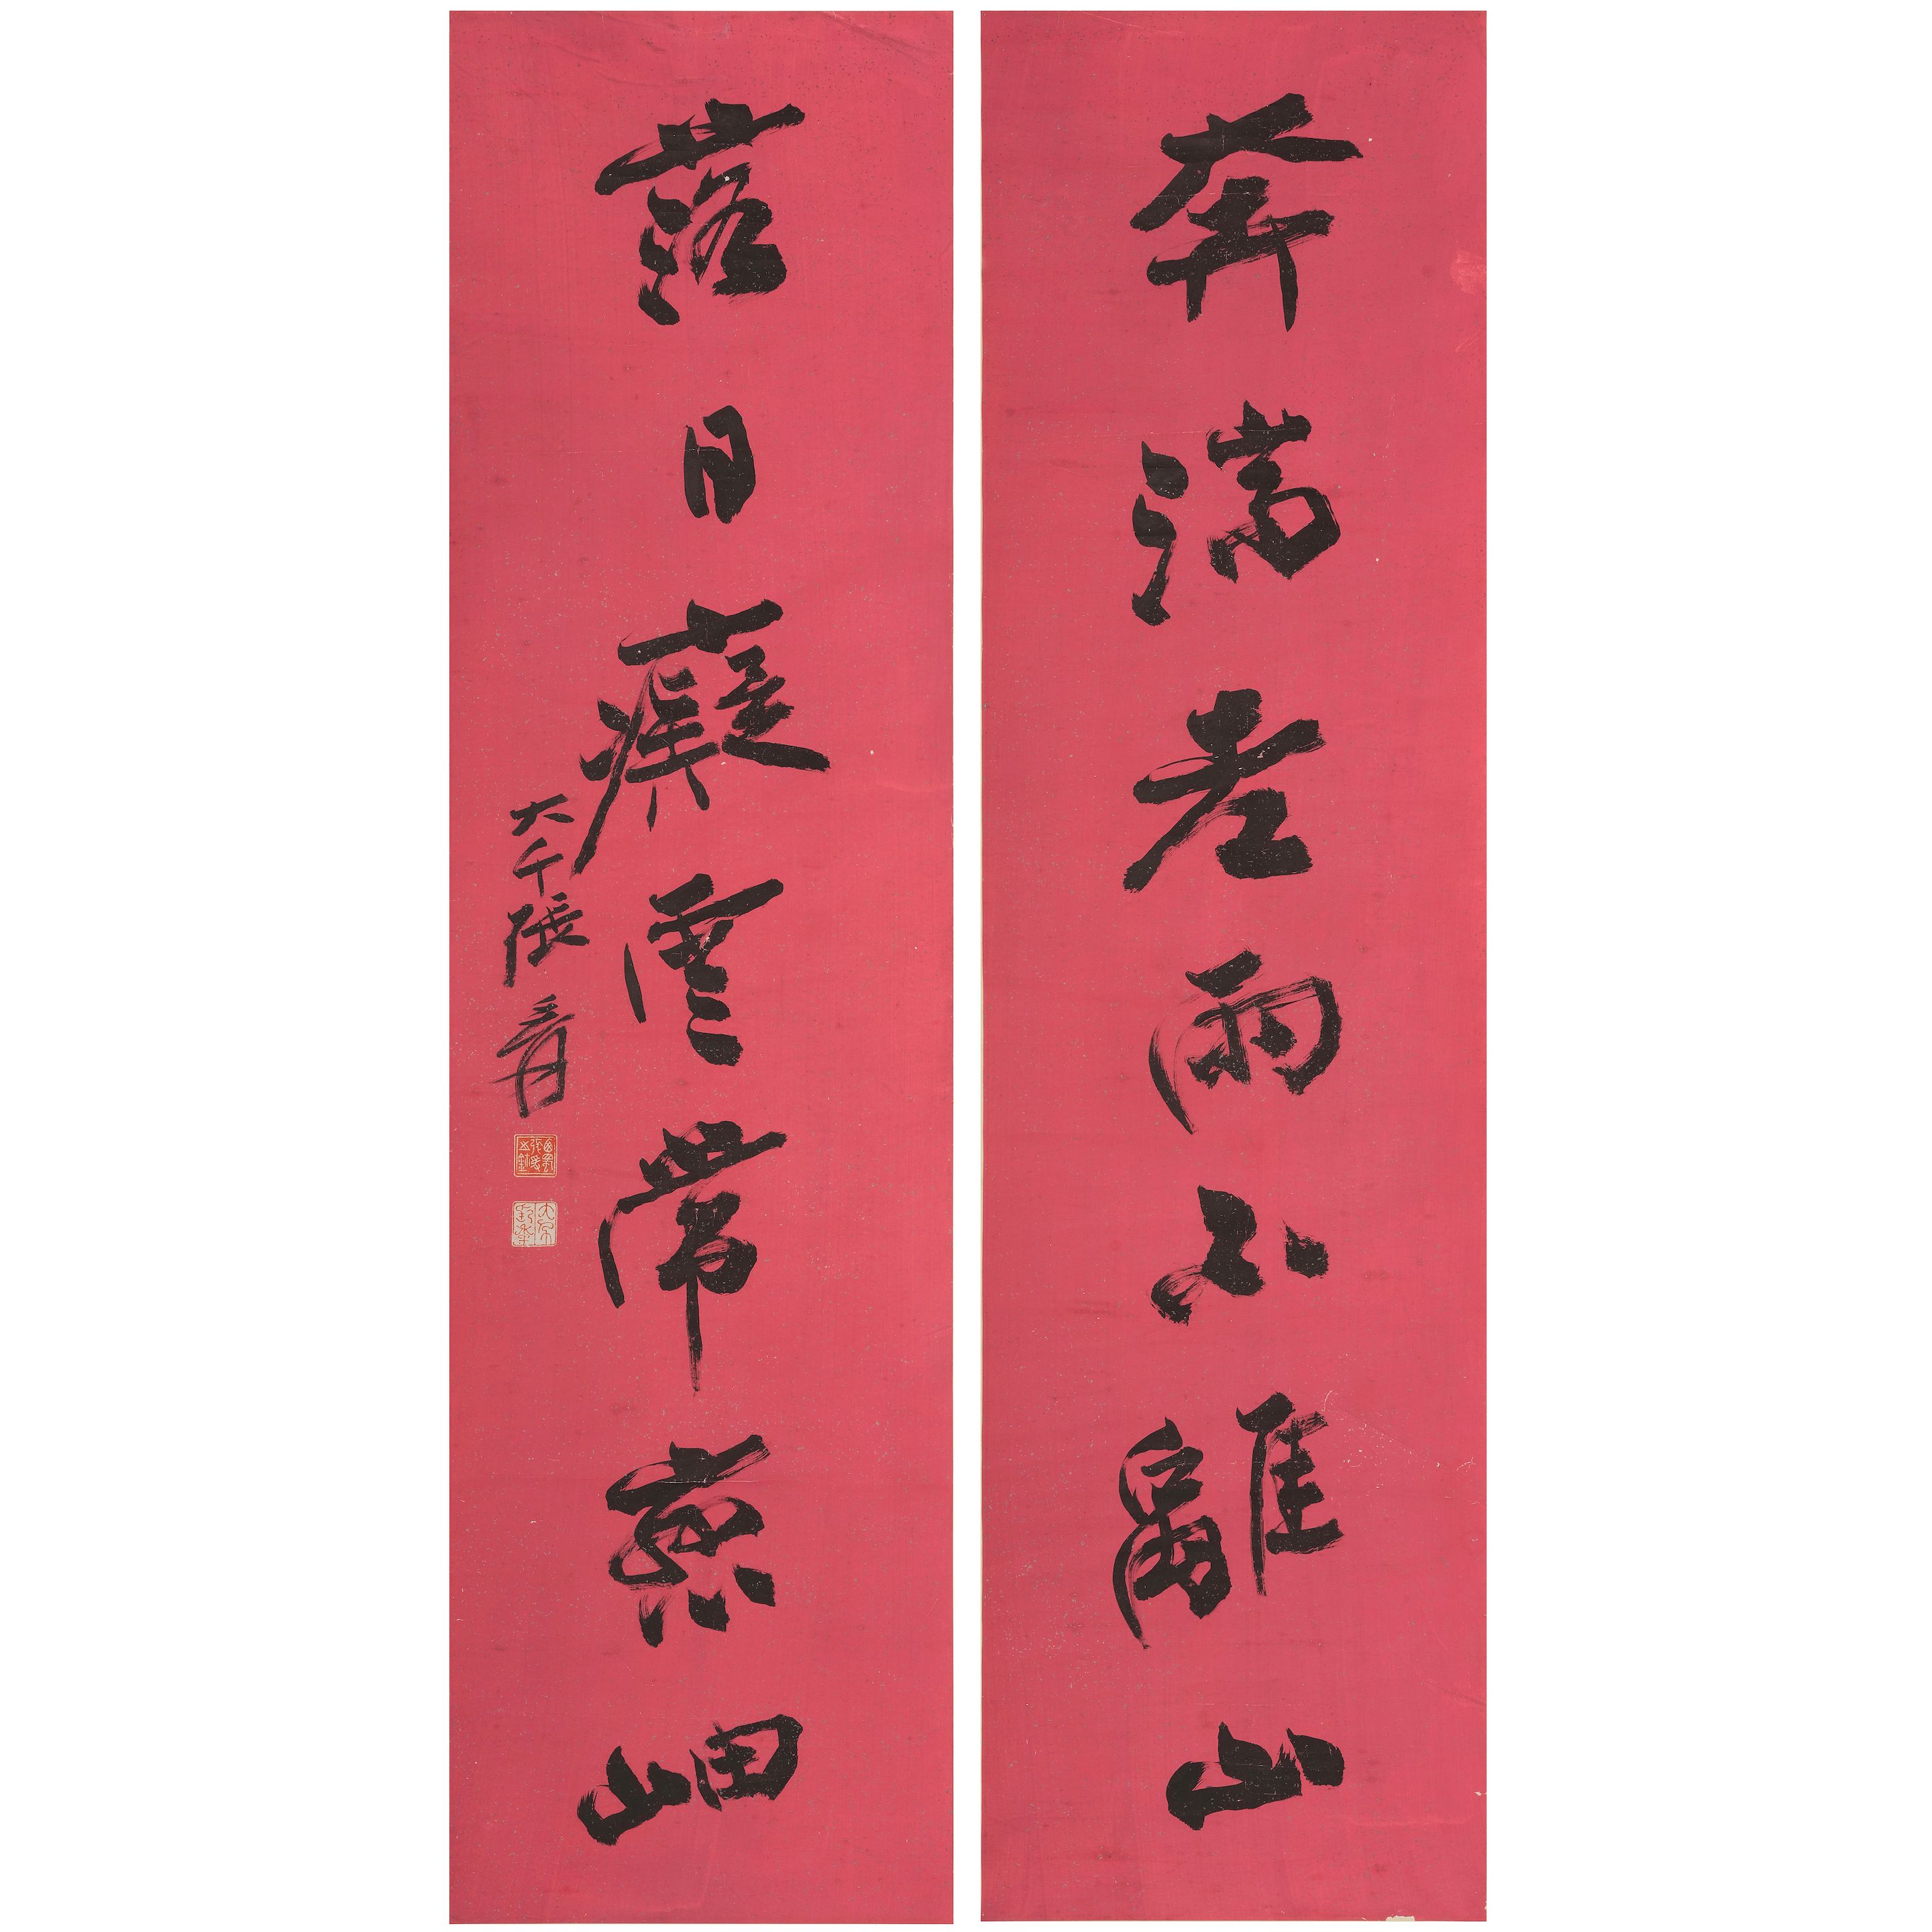 奔湍老雨不離山
落日癡雲常岫
大千張爰